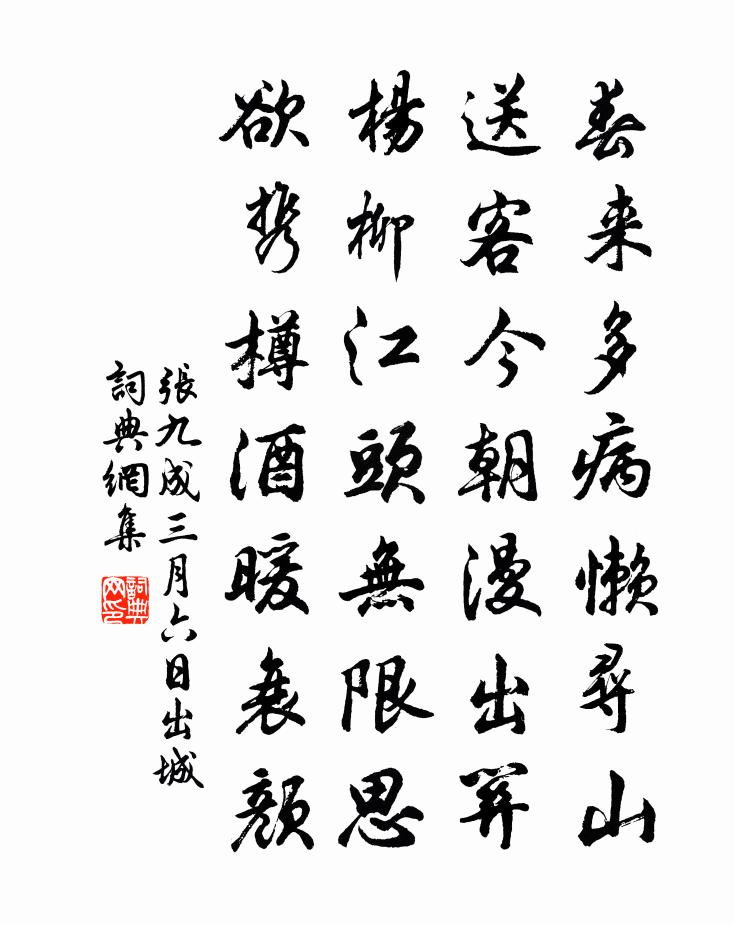 春来多病懶尋山
送客今朝漫出關
楊柳江頭無限思
欲携樽酒暖衰顏
張九成三月六日出城
詞典網集
詞典网印